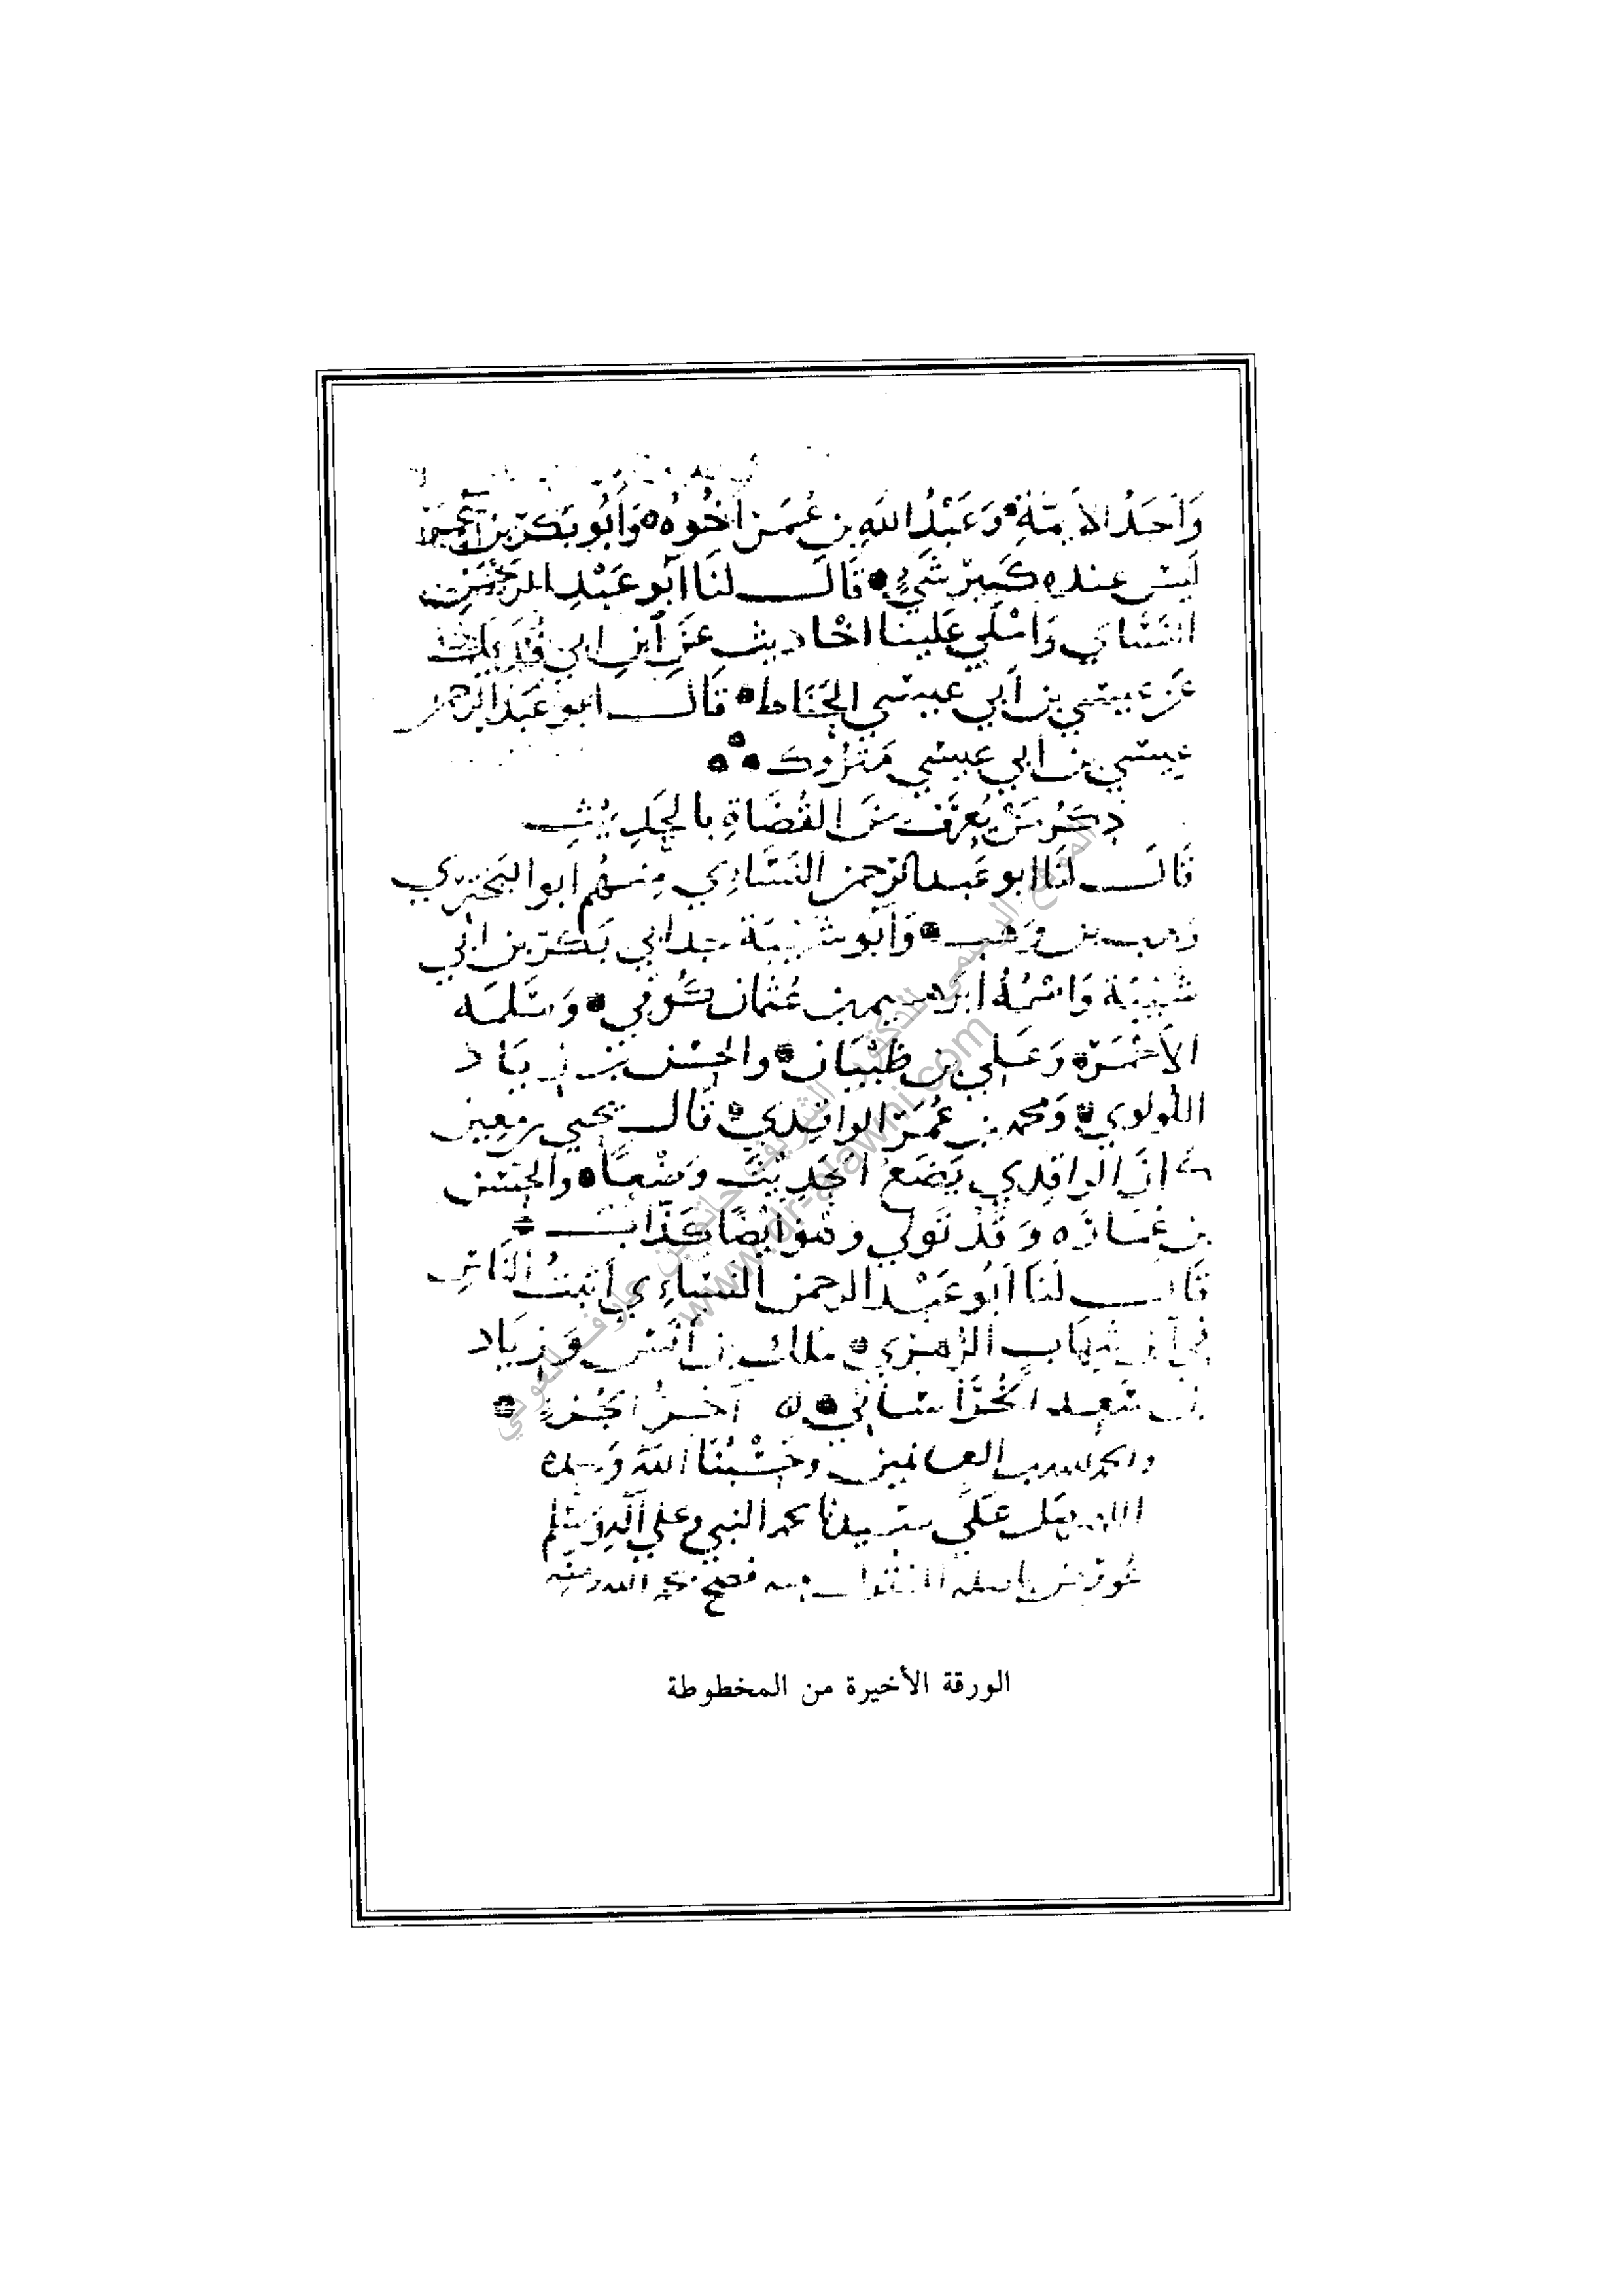 وَاَحَدُ الاَيمَّةِ وَعَبْدُ اللهِ بن عُمَر اَخُوهُ وَاَبُو بَكر بن
ليسَ عنده كَبيرُ شَيٍ قَالَ لنَا اَبو عَبْدِ الرحمن
النسَاي وَاَملَي عَلينا احَاديث عَن ابن ابي فُدَيك
عَن عيسَي بن اَبي عيسَي الحنَّاط قَالَ ابو عَبد الرحمن
عيسَي بن ابي عيسَي مَتروك
ذِكرُ مَن يُعرَف مَن القُضَاةِ بالحَدِيث
قَالَ لنَا ابو عَبد الرَّحمن النسَاءِي مِنهُم ابو البَختري
وَهب بن وَهب وَاَبو شَيبَة جد ابي بَكر بن ابي
شَيبَة وَاسمُهُ ابرَهيم بن عُثمان كُوفي وَسَلمَه
الاَحمَر وَعَلي بن ظَبْيَان والحسَن بن زيَاد
اللُولوي وَمحمد بن عُمَر الواقِدي قَال يحيي بن مَعِين
كانَ الواقِدي يَضَعُ الحَدِيثَ وَضْعًا والحسَن
بن عُمَارَه وَقَد تولي وهوَ ايضًا كَذَّابٌ
قَالَ لنَا اَبُو عَبْد الرحمن النسَاءِي اَثبتُ النَّاسِ
في ابن شِهَاب الزُهري ملك بن اَنَس وَزِيَاد
بن سَعِد الخُرَاسَاني ه آخِرُ الجُزءِ
والحمد لله رب العَالمين وحَسْبُنَا اللهُ وَحده
اللهم صَل عَلَي سَيدنا محمد النبي وعلي آلِهِ وسَلم
الورقة الأخيرة من المخطوطة
الموقع الرسمي للدكتور الشريف حاتم بن عارف العوني
www.dr-alawni.com